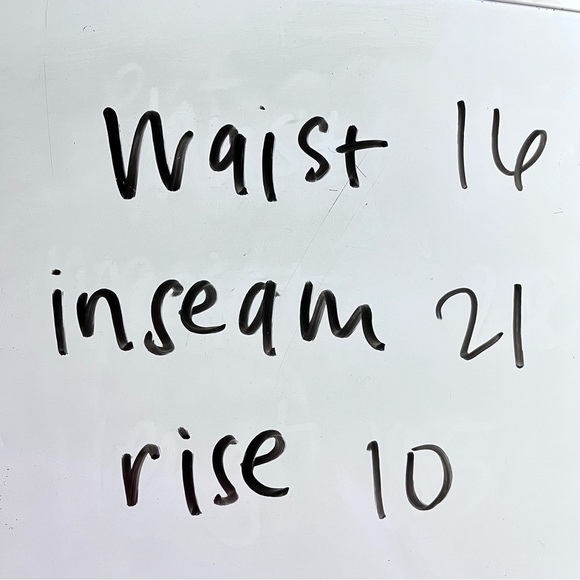 Waist 16
inseam 21
rise 10